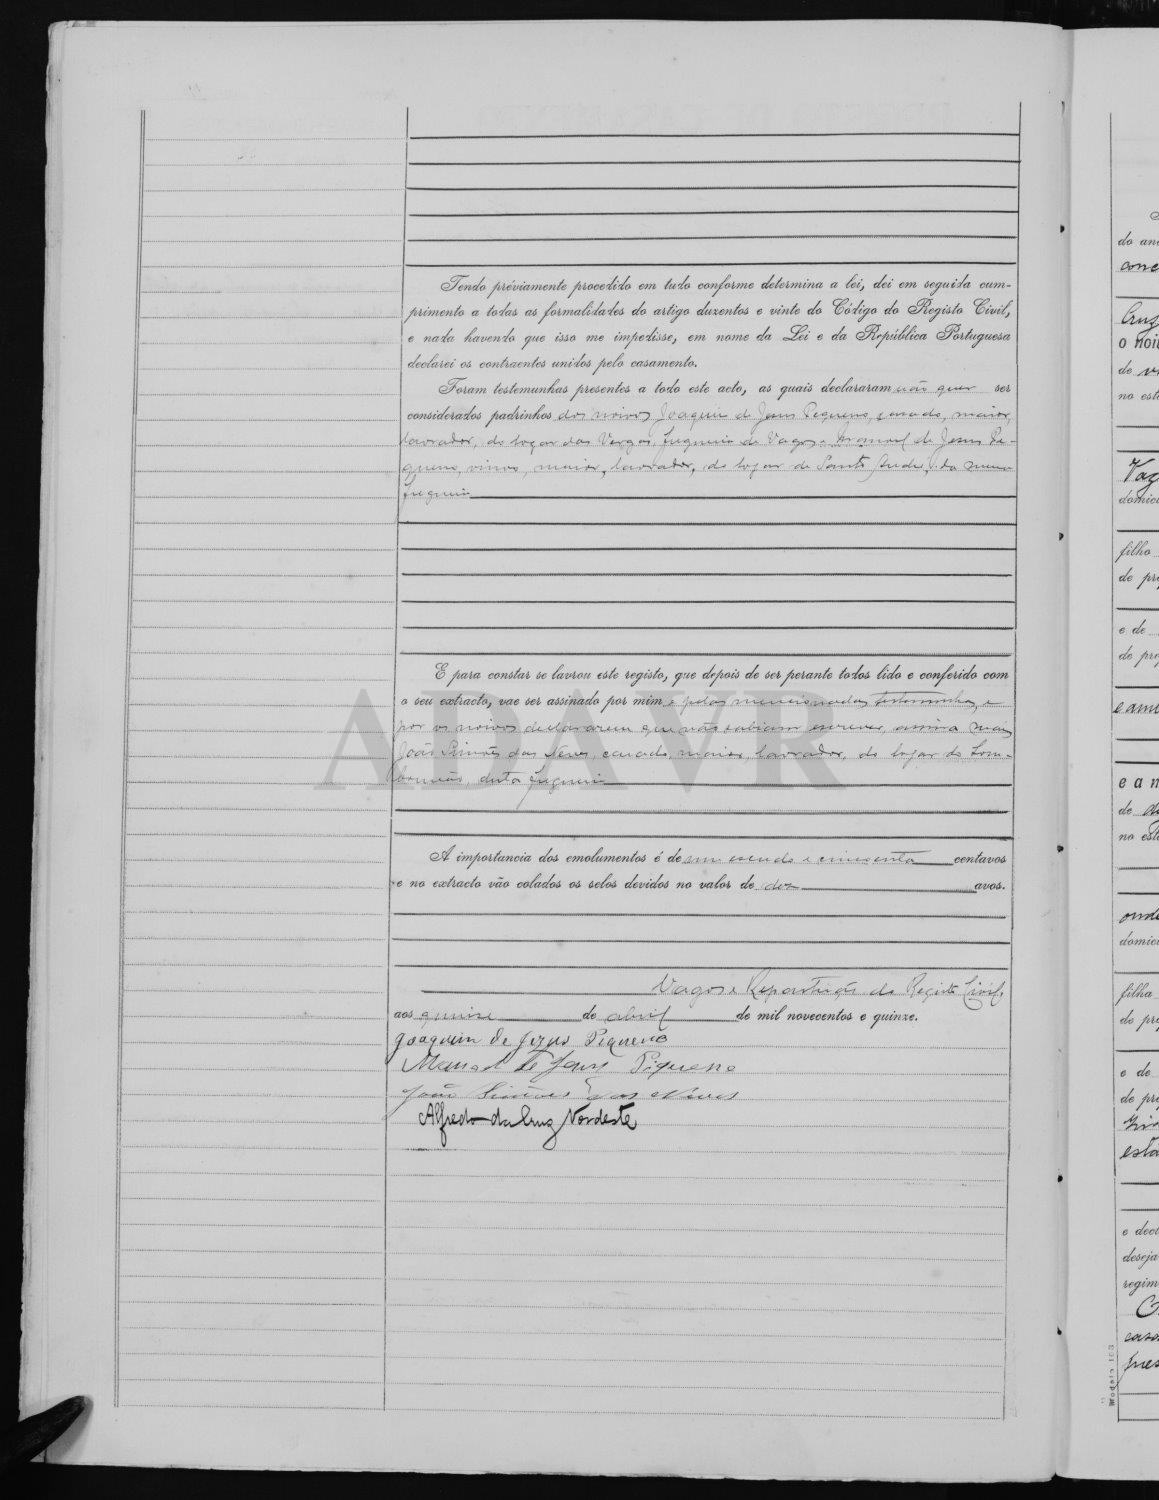 Tendo préviamente procedido em tudo conforme determina a lei, dei em seguida cum-
primento a todas as formalidades do artigo duzentos e vinte do Código do Registo Civil,
e nada havendo que isso me impedisse, em nome da Lei e da República Portuguesa
declarei os contraentes unidos pelo casamento.
Foram testemunhas presentes a todo este acto, as quais declararam não quer ser
considerados padrinhos dos noivos Joaquim de Jesus Pequeno, casado, maior,
lavrador, do logar das Vergas, freguezia de Vagos e Manoel de Jesus Pe-
queno, viuvo, maior, lavrador, do logar de Santo André, da mesma
freguezia
E para constar se lavrou este registo, que depois de ser perante todos lido e conferido com
o seu extracto, vae ser assinado por mim e pelas mencionadas testemunhas, e
por os noivos declararem que não sabiam escrever, assina mais
João Simões das Neves, casado, maior, lavrador, do logar de Lom-
bomeão, desta freguezia
A importancia dos emolumentos é de um escudo e cincoenta centavos
e no extracto vão colados os selos devidos no valor de dez avos.
Vagos e Repartição do Registo Civil,
aos quinze de abril de mil novecentos e quinze.
Joaquim de Jezus Piqueno
Manoel de Jesus Piqueno
João Simões das Neves
Alfredo da Cruz Nordeste
ADAVR
do an
conc
Cruz
o noi
de vi
no est
Vag
domici
filho
de pro
e de
de pro
e am
e a n
de
no est
onde
domici
filha
de pro
e de
de pro
esta
e decl
deseja
regim
casa
Modelo 103